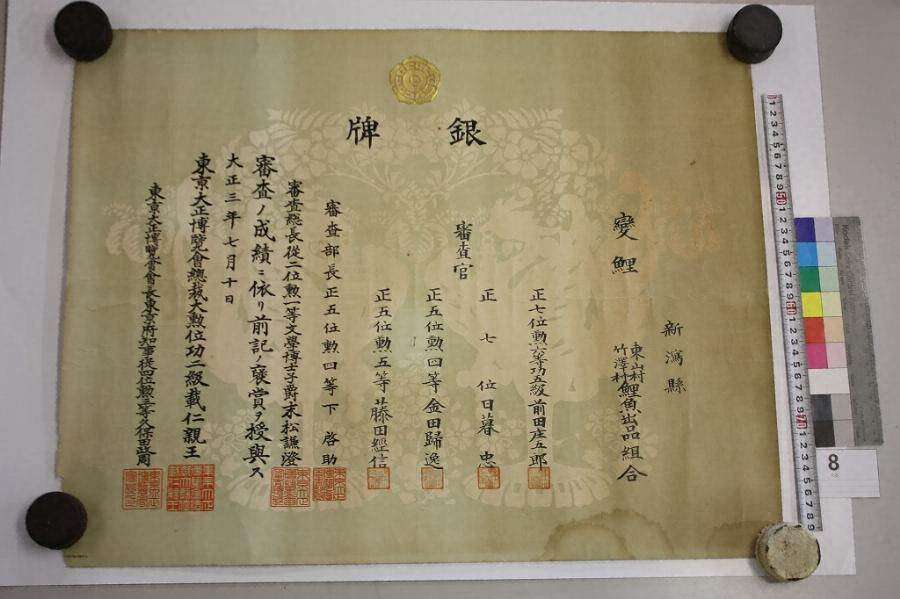 銀牌
新潟縣
變鯉
東山村
竹澤村
鯉魚出品組合
審査官
正七位勲六等功五級前田庄五郎
正七位日暮忠
正五位勲四等金田歸逸
正五位勲五等藤田經信
審査部長正五位勲四等下啓助
審査總長從二位勲一等文學博士子爵末松謙澄
審査ノ成績ニ依リ前記ノ褒賞ヲ授與ス
大正三年七月十日
東京大正博覽會總裁大勲位功二級載仁親王
東京大正博覽會會長東京府知事從四位勲三等久保田政周
8